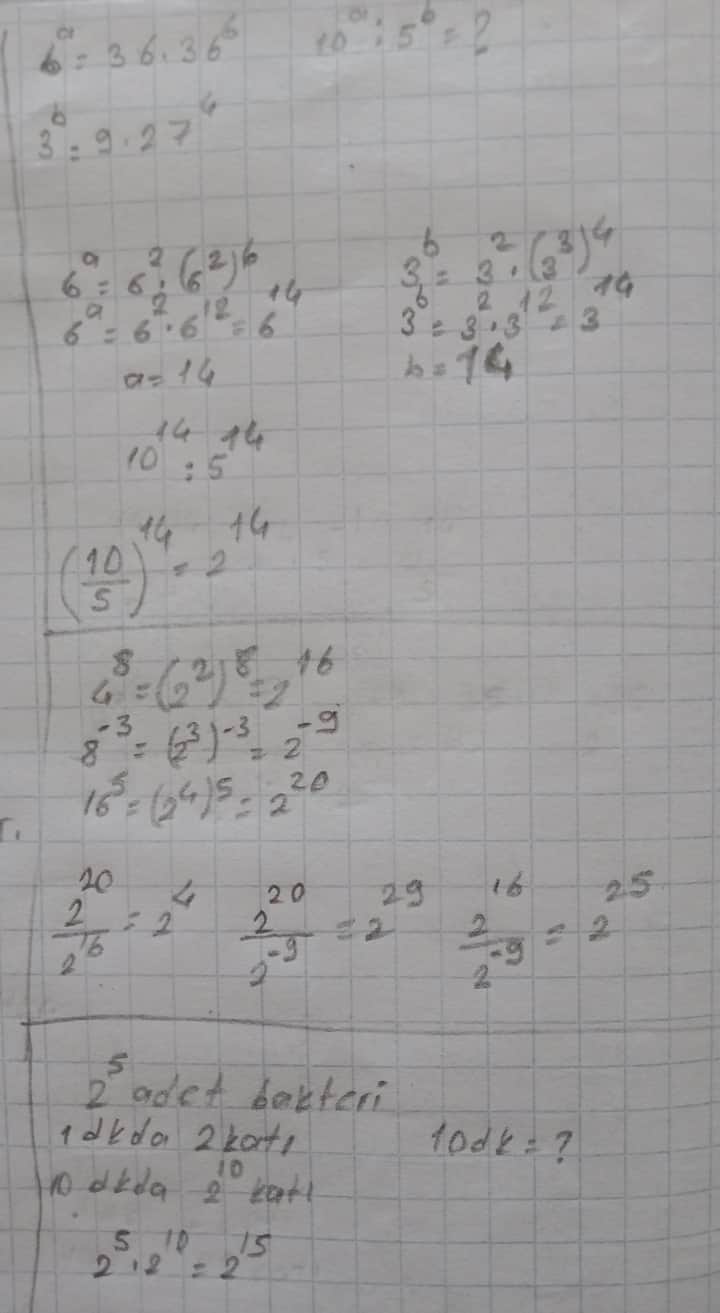 6ᵃ = 36.36⁶ 10ᵃ : 5ᵇ = ?
3ᵇ = 9.27⁴
6ᵃ = 6².(6²)⁶ 3ᵇ = 3².(3³)⁴
6ᵃ = 6².6¹² = 6¹⁴ 3ᵇ = 3².3¹² = 3¹⁴
a = 14 b = 14
10¹⁴ : 5¹⁴
(10/5)¹⁴ = 2¹⁴
4⁸ = (2²)⁸ = 2¹⁶
8⁻³ = (2³)⁻³ = 2⁻⁹
16⁵ = (2⁴)⁵ = 2²⁰
2²⁰/2¹⁶ = 2⁴ 2²⁰/2⁻⁹ = 2²⁹ 2¹⁶/2⁻⁹ = 2²⁵
2⁵ adet bakteri
1 dkda 2 katı 10dk = ?
10 dkda 2¹⁰ katı
2⁵.2¹⁰ = 2¹⁵